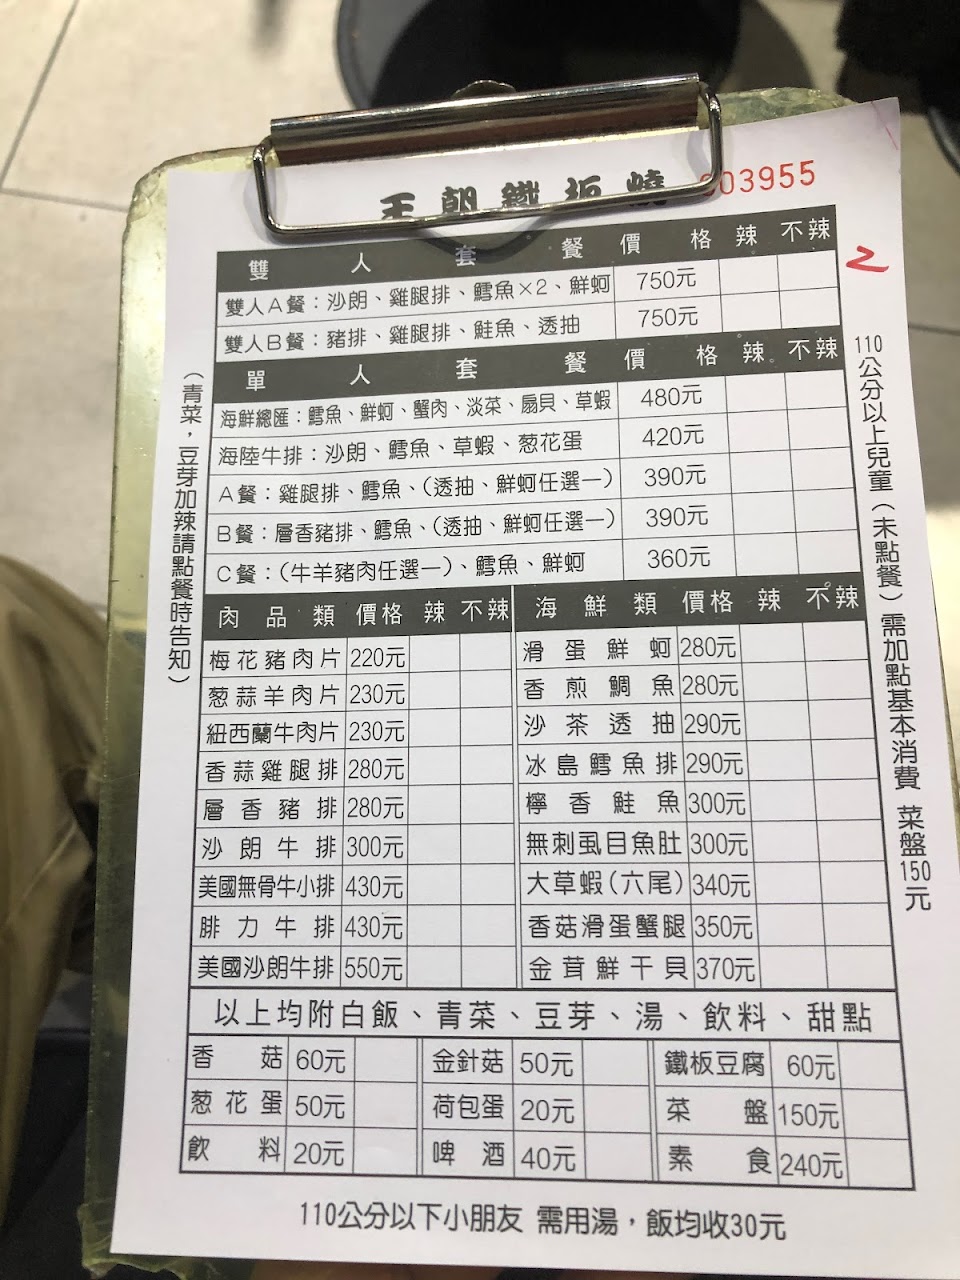 王朝鐵板燒 003955
2
雙人套餐 價格 辣 不辣
雙人A餐：沙朗、雞腿排、鱈魚×2、鮮蚵 750元
雙人B餐：豬排、雞腿排、鮭魚、透抽 750元
單人套餐 價格 辣 不辣
海鮮總匯：鱈魚、鮮蚵、蟹肉、淡菜、扇貝、草蝦 480元
海陸牛排：沙朗、鱈魚、草蝦、葱花蛋 420元
A餐：雞腿排、鱈魚、(透抽、鮮蚵任選一) 390元
B餐：層香豬排、鱈魚、(透抽、鮮蚵任選一) 390元
C餐：(牛羊豬肉任選一)、鱈魚、鮮蚵 360元
肉品類 價格 辣 不辣 海鮮類 價格 辣 不辣
梅花豬肉片 220元 滑蛋鮮蚵 280元
葱蒜羊肉片 230元 香煎鯛魚 280元
紐西蘭牛肉片 230元 沙茶透抽 290元
香蒜雞腿排 280元 冰島鱈魚排 290元
層香豬排 280元 檸香鮭魚 300元
沙朗牛排 300元 無刺虱目魚肚 300元
美國無骨牛小排 430元 大草蝦(六尾) 340元
腓力牛排 430元 香菇滑蛋蟹腿 350元
美國沙朗牛排 550元 金茸鮮干貝 370元
以上均附白飯、青菜、豆芽、湯、飲料、甜點
香菇 60元 金針菇 50元 鐵板豆腐 60元
葱花蛋 50元 荷包蛋 20元 菜盤 150元
飲料 20元 啤酒 40元 素食 240元
110公分以下小朋友 需用湯，飯均收30元
(青菜，豆芽加辣請點餐時告知)
110公分以上兒童(未點餐)需加點基本消費 菜盤150元